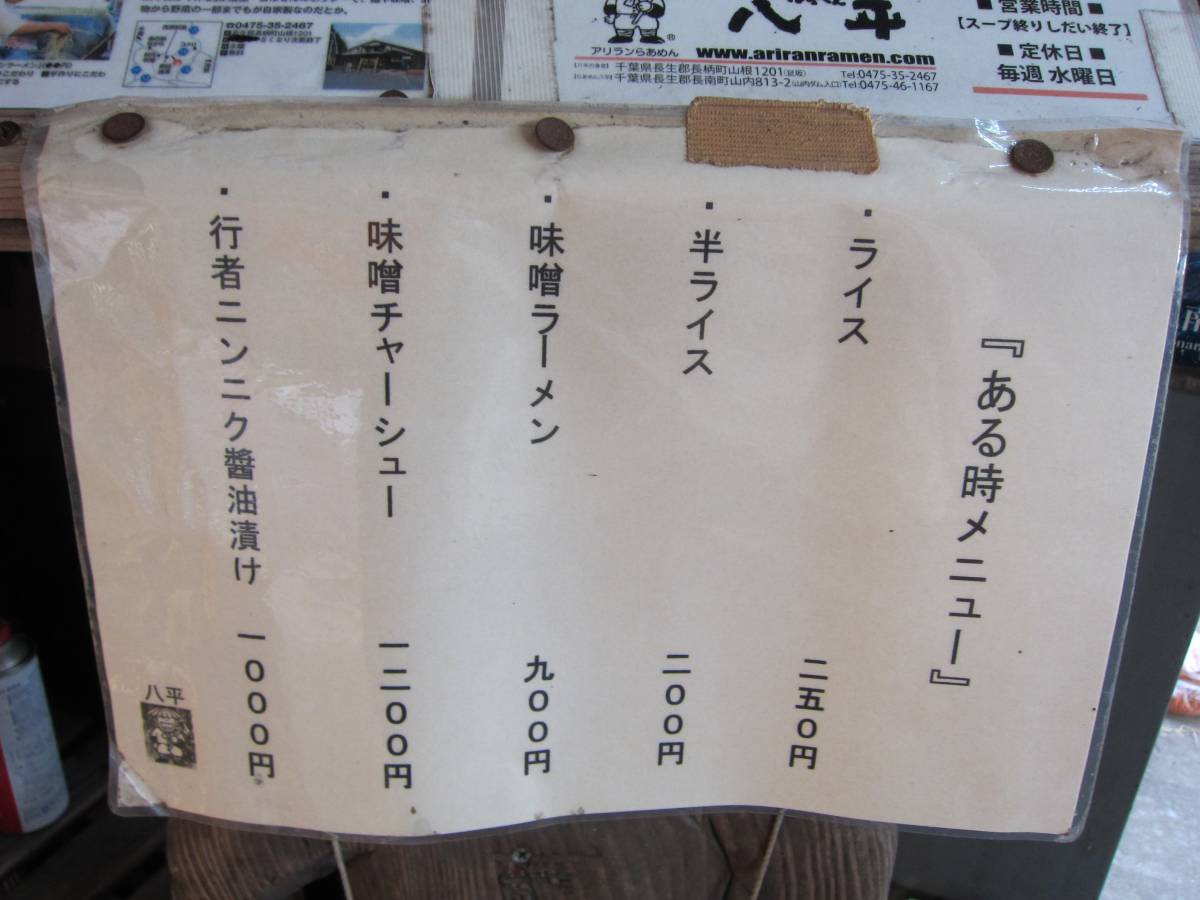 ☎0475-35-2467
アリランらあめん
®
www.ariranramen.com
千葉県長生郡長柄町山根1201 Tel:0475-35-2467
千葉県長生郡長南町山内813-2 Tel:0475-46-1167
■ 営業時間 ■
【スープ終りしだい終了】
■ 定休日 ■
毎週 水曜日
『ある時メニュー』
・ライス 二五〇円
・半ライス 二〇〇円
・味噌ラーメン 九〇〇円
・味噌チャーシュー 一二〇〇円
・行者ニンニク醬油漬け 一〇〇〇円
八平